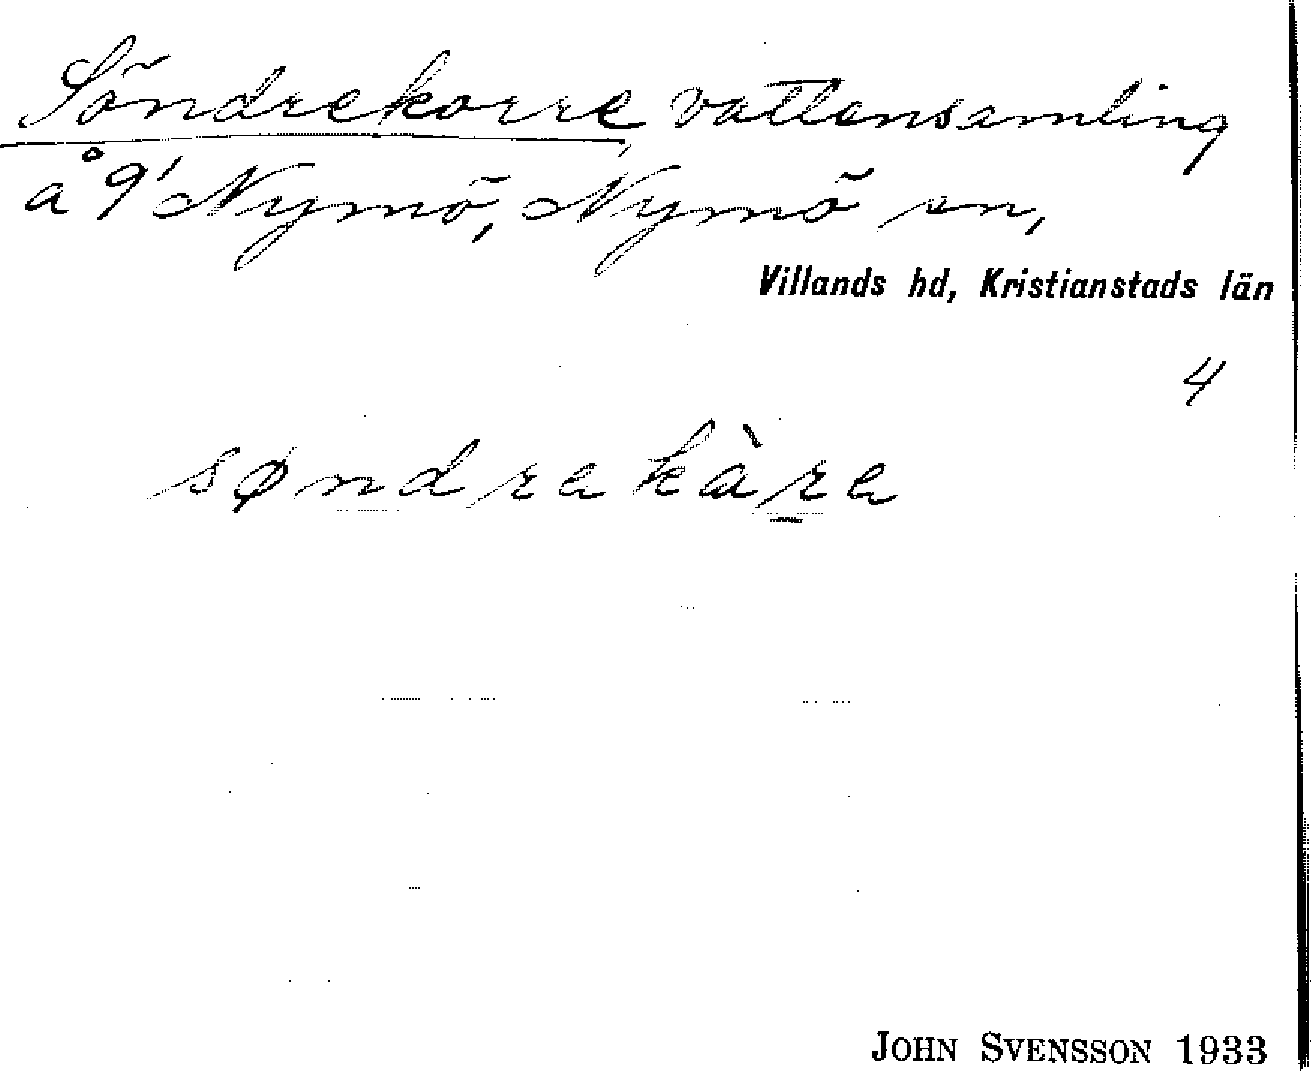 Söndrekorre, vattensamling
å 9' Nymö, Nymö sn,
Villands hd, Kristianstads län
4
søndrekàre
JOHN SVENSSON 1933